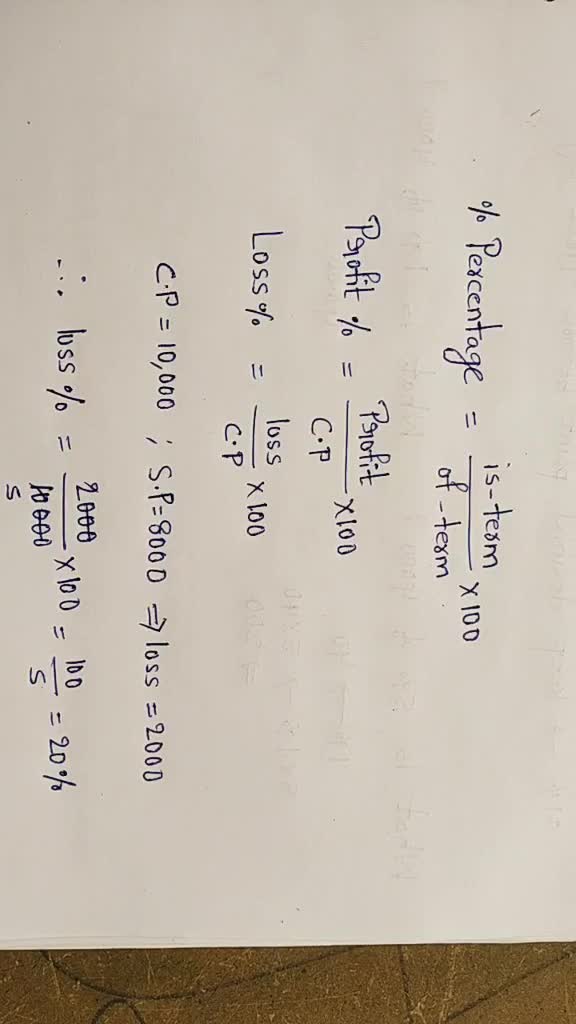 % Percentage = is-term / of-term × 100
Profit % = Profit / C.P × 100
Loss % = loss / C.P × 100
C.P = 10,000 ; S.P = 8000 ⇒ loss = 2000
∴ loss % = 2000 / 10000 × 100 = 100 / 5 = 20%
5